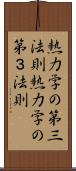 熱力学の第三
法則熱力学の
第３法則